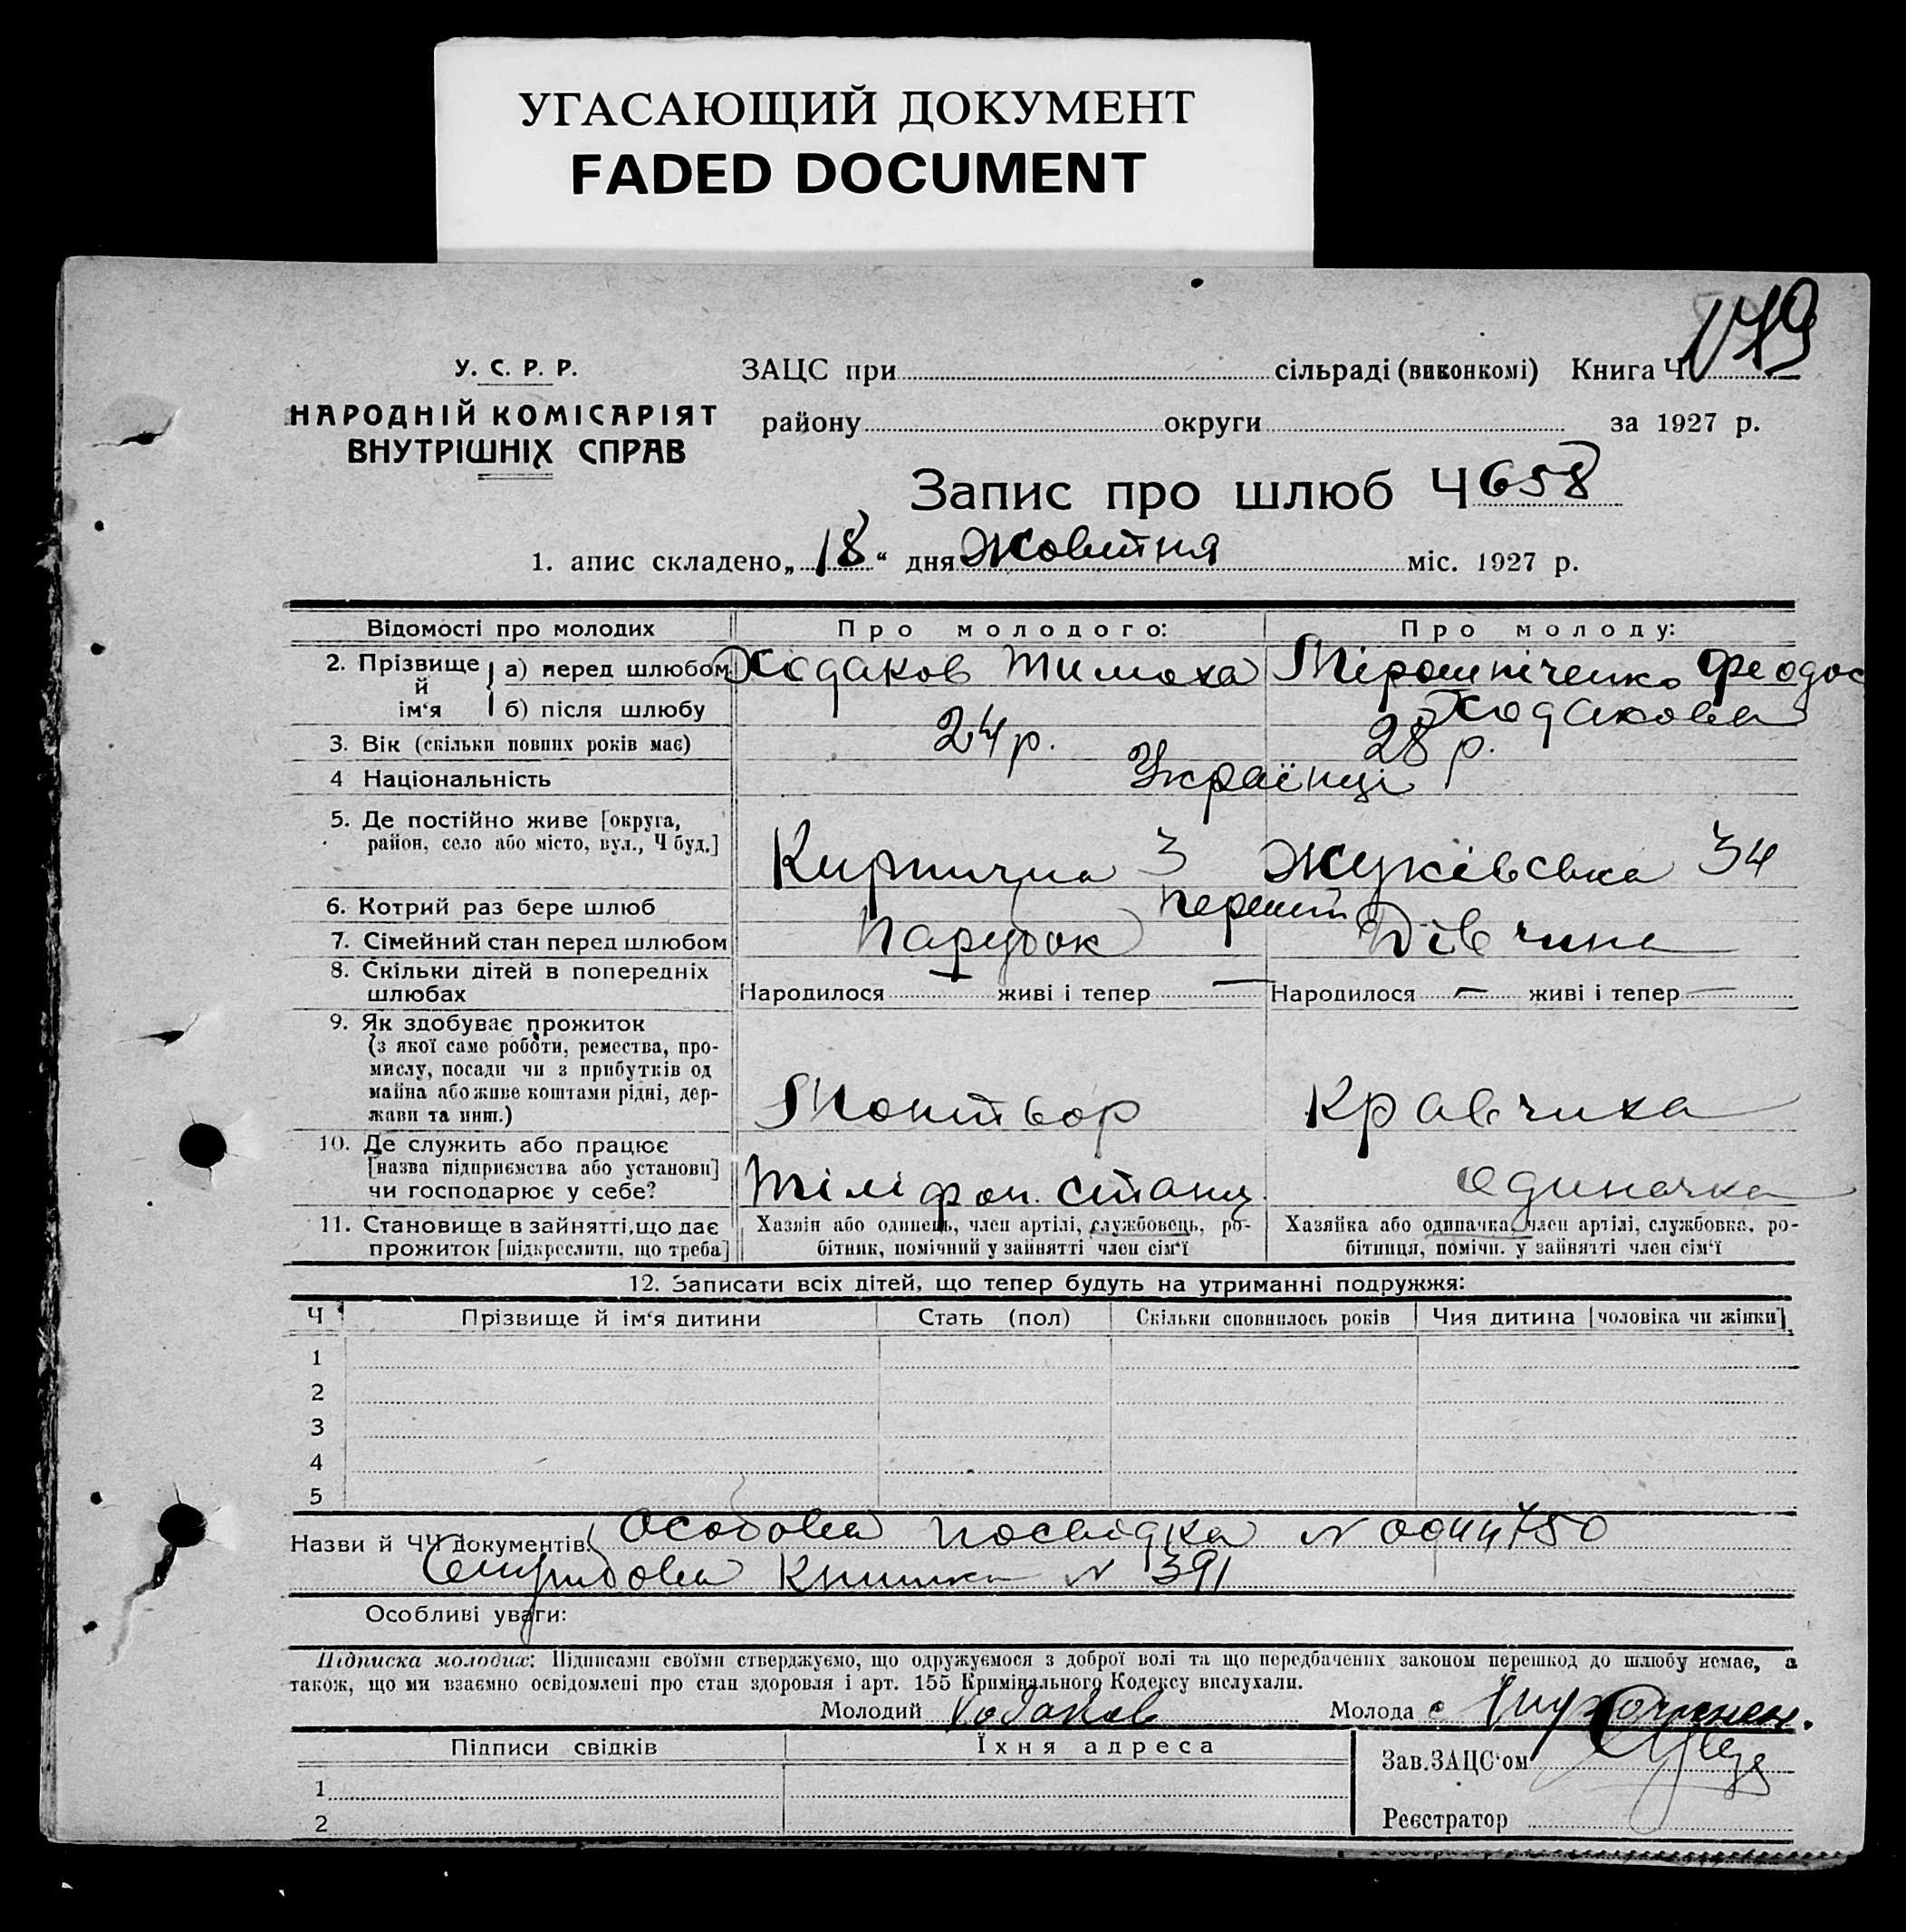 УГАСАЮЩИЙ ДОКУМЕНТ
FADED DOCUMENT
У. С. Р. Р.
НАРОДНІЙ КОМІСАРІЯТ
ВНУТРІШНІХ СПРАВ
ЗАЦС при сільраді (виконкомі) Книга Ч
району округи за 1927 р.
Запис про шлюб Ч 658
1. апис складено „18“ дня Жовтня міс. 1927 р.
Відомості про молодих Про молодого: Про молоду:
2. Прізвище й ім‘я
а) перед шлюбом Ходаков Тимоха Мірошніченко Феодос
б) після шлюбу Ходакова
3. Вік (скільки повних років має) 24 р. 28 р.
4 Національність Українці
5. Де постійно живе [округа,
район, село або місто, вул., Ч буд.]
Кирпична 3 Жуківська 34
6. Котрий раз бере шлюб перший
7. Сімейний стан перед шлюбом Парубок Дівчина
8. Скільки дітей в попередніх
шлюбах
Народилося — живі і тепер — Народилося — живі і тепер —
9. Як здобуває прожиток
(з якої саме роботи, ремества, про-
мислу, посади чи з прибутків од
майна або живе коштами рідні, дер-
жави та инш.)
Монтьор Кравчиха
10. Де служить або працює
[назва підприємства або установи]
чи господарює у себе?
Тіліфон. станц. одиночка
11. Становище в зайнятті, що дає
прожиток [підкреслити, що треба]
Хазяін або одинець, член артілі, службовець, ро-
бітник, помічний у зайнятті член сім‘ї
Хазяйка або одиначка, член артілі, службовка, ро-
бітниця, помічн. у зайнятті член сім‘ї
12. Записати всіх дітей, що тепер будуть на утриманні подружжя:
Ч Прізвище й ім‘я дитини Стать (пол) Скільки сповнилось років Чия дитина [чоловіка чи жінки]
1
2
3
4
5
Назви й ЧЧ документів: Особова посвідка N 0044750
Книжка N 391
Особливі уваги:
Підписка молодих: Підписами своїми стверджуємо, що одружуємося з доброї волі та що передбачених законом перешкод до шлюбу немає, а
також, що ми взаємно освідомлені про стан здоровля і арт. 155 Кримінального Кодексу вислухали.
Молодий Ходаков Молода
Підписи свідків Їхня адреса
Зав.ЗАЦС‘ом
1
2
Реєстратор